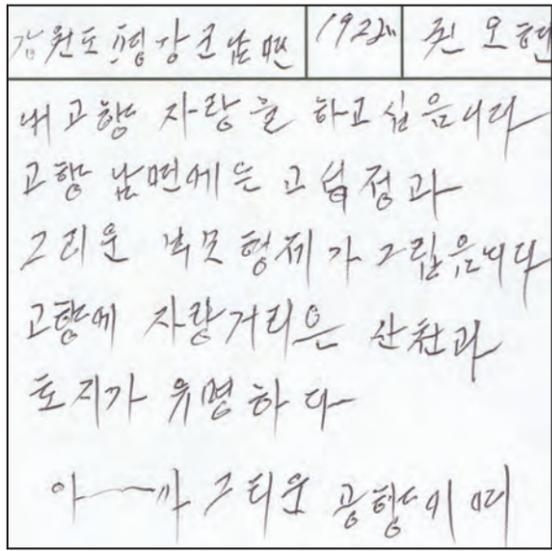 강원도 평강군 남면 1922년 권오현
내 고향 자랑을 하고 싶음니다
고향 남면에는 고석정과
그리운 부모 형제가 그립음니다
고향에 자랑거리은 산천과
토지가 유명하다
아——아 그리운 공향이며